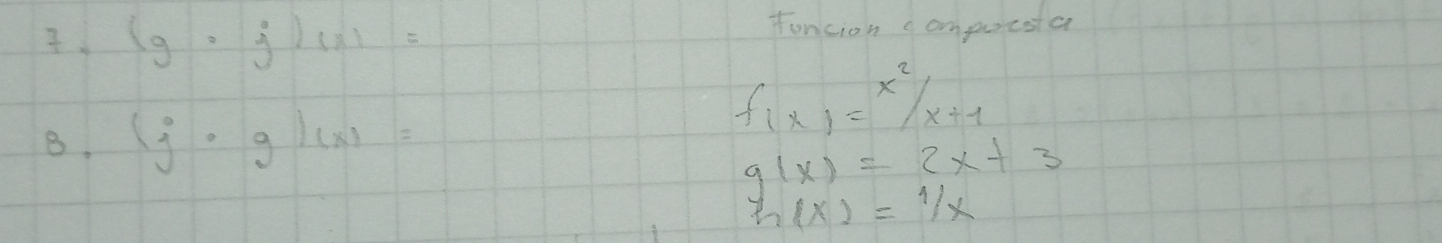 7. (g ∘ j)(x) =
8. (j ∘ g)(x) =
Funcion compuesta
f(x) = x²/x+1
g(x) = 2x + 3
h(x) = 1/x